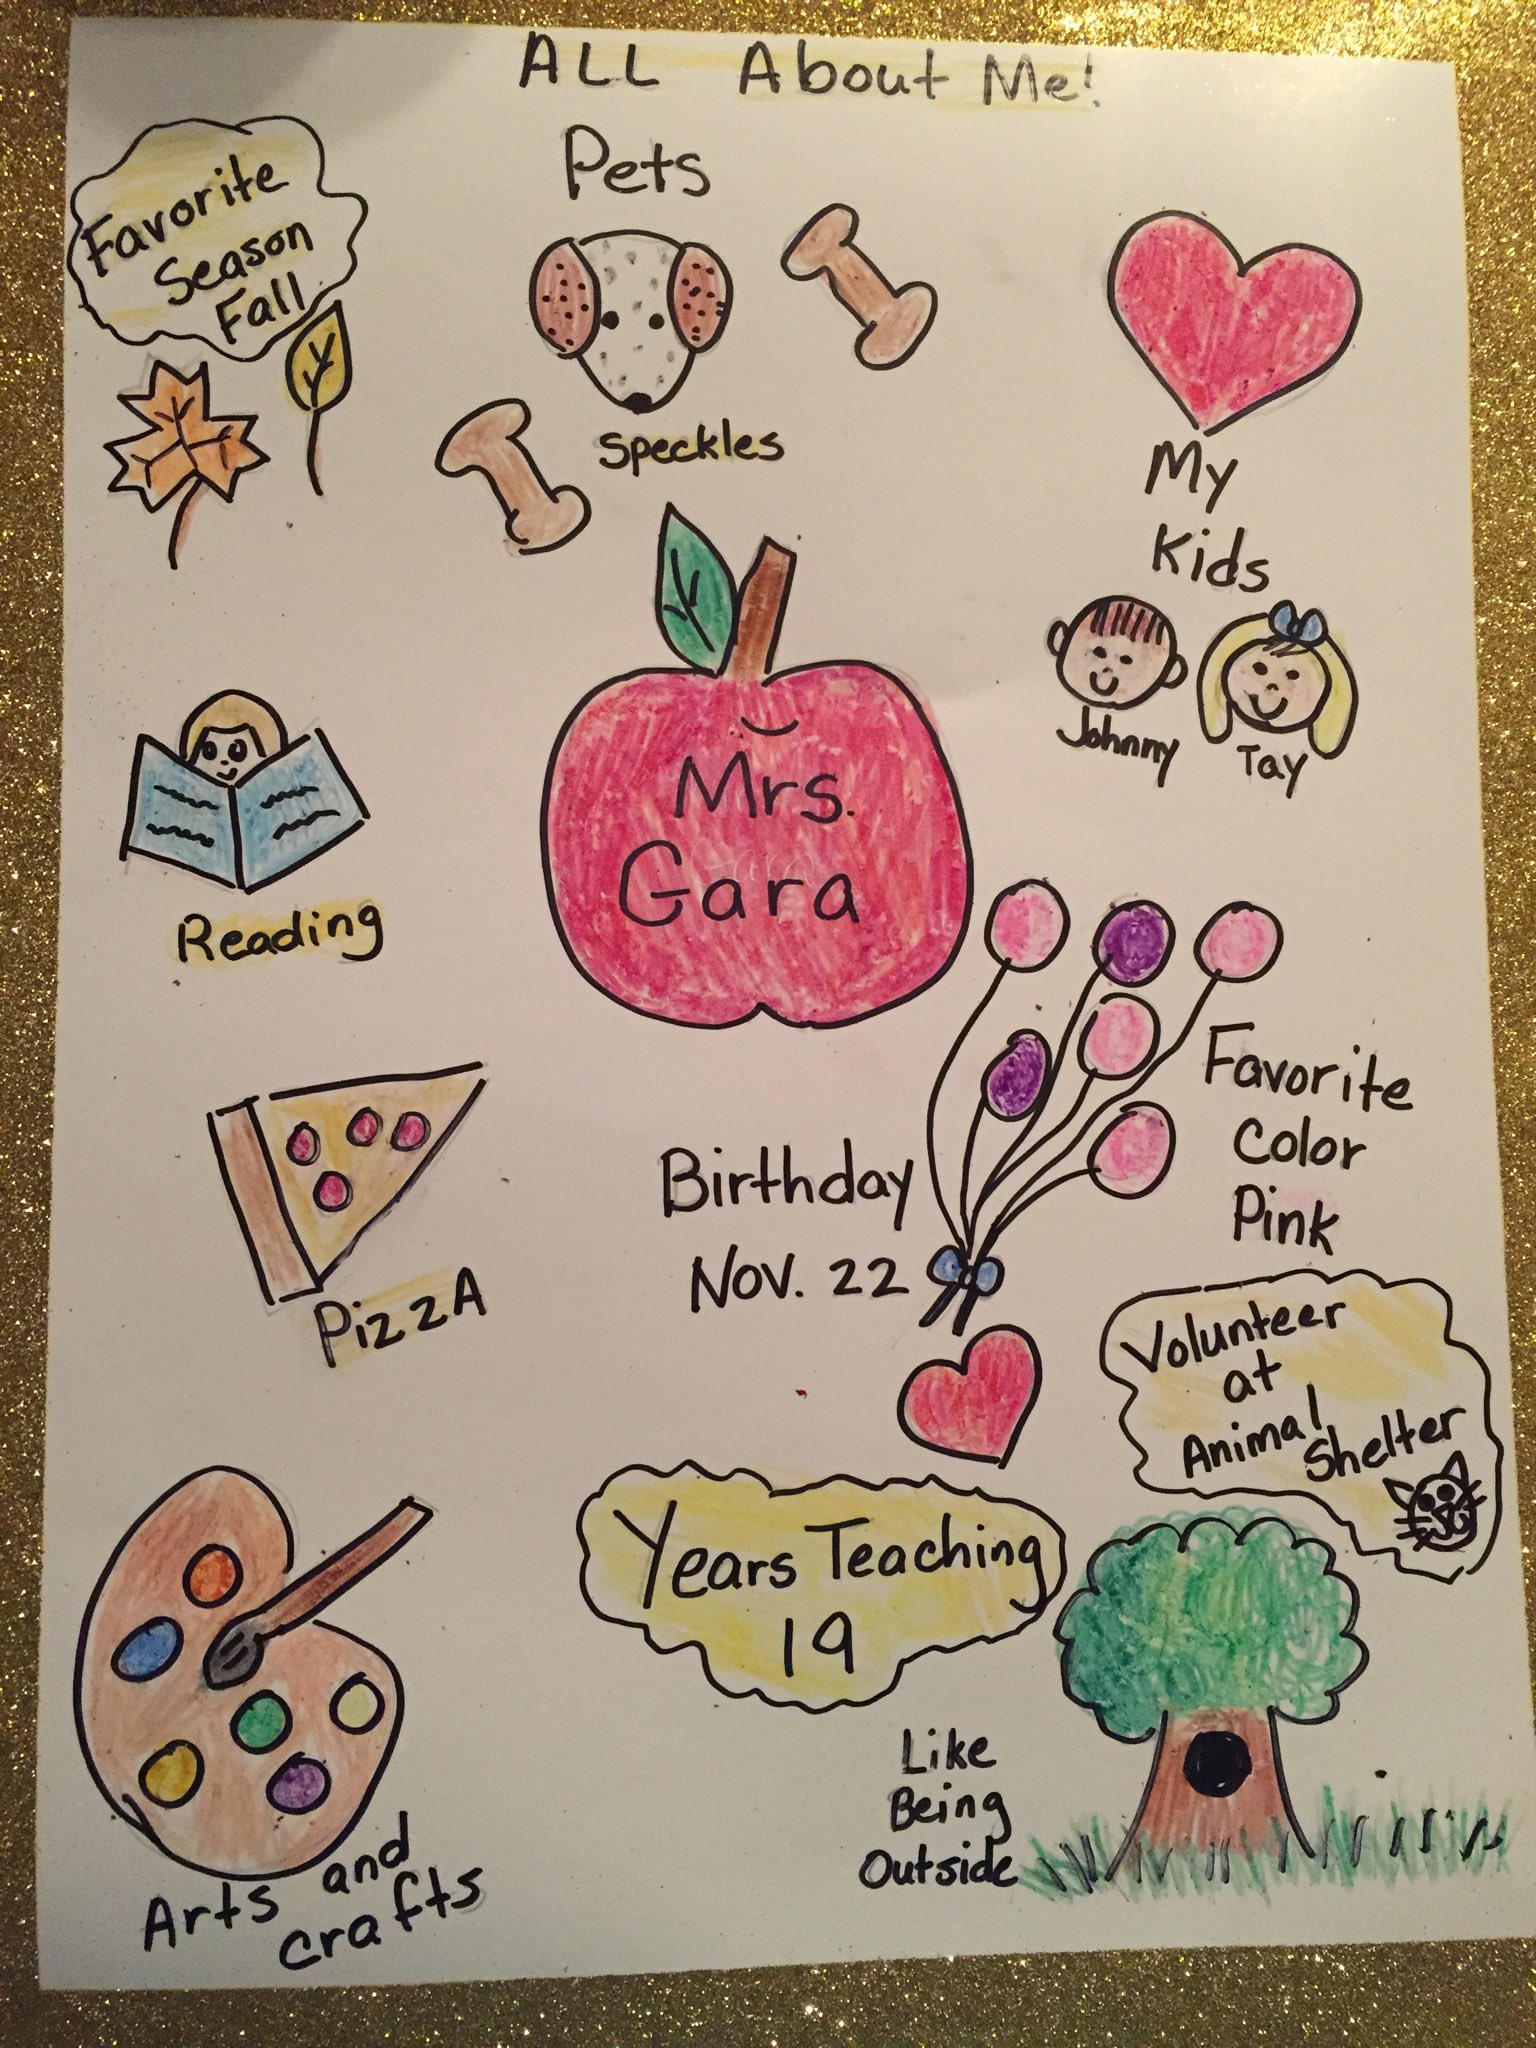 ALL About Me!
Favorite
Season
Fall
Pets
Speckles
My
Kids
Johnny
Tay
Mrs.
Gara
Reading
Favorite
Color
Pink
Birthday
Nov. 22
PizzA
Volunteer
at
Animal
Shelter
Years Teaching
19
Like
Being
Outside
Arts and
crafts